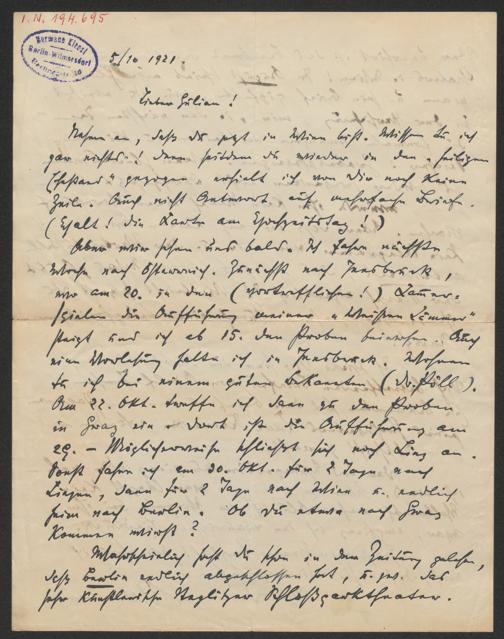 I.N. 194.695
Hermann Kienzl
Berlin-Wilmersdorf
5/10 1921.
Lieber Julian!
Nehme an, daß du jetzt in Wien bist. Wissen tu ich
gar nichts! Denn seitdem du wieder in den „heiligen
Ehestand" gezogen, erhielt ich von dir noch keine
Zeile. Auch nicht Antwort auf mehrfache Briefe.
(Halt! die Karte am Hochzeitstag!)
Aber wir sehen uns bald. Ich fahre nächste
Woche nach Österreich. Zunächst nach Innsbruck,
wo am 20. in den (vortrefflichen!) Kammer-
spielen die Aufführung meiner „Weißen Lämmer"
steigt und ich ab 15. den Proben beiwohne. Auch
eine Vorlesung halte ich in Innsbruck. Wohnen
tu ich bei einem guten Bekannten (Dr. Pöll).
Am 22. Okt. treffe ich dann zu den Proben
in Graz ein – dort ist die Aufführung am
29. – Möglicherweise schließt sich noch Linz an.
Sonst fahre ich am 30. Okt. für 2 Tage nach
, dann für 2 Tage nach Wien u. endlich
heim nach Berlin. Ob du etwa nach Graz
kommen wirst?
Wahrscheinlich hast du schon in den Zeitung gelesen,
daß Berlin endlich abgeschlossen hat, u. zw. das
sehr künstlerische Steglitzer Schloßparktheater.